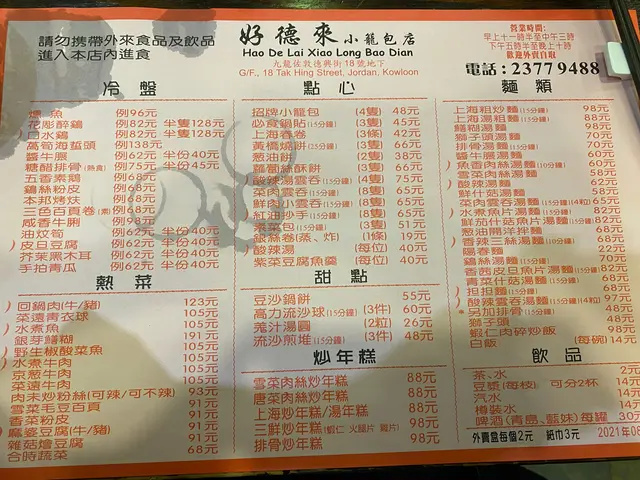 請勿携帶外來食品及飲品
進入本店內進食
好德來小籠包店
Hao De Lai Xiao Long Bao Dian
九龍佐敦德興街18號地下
G/F., 18 Tak Hing Street, Jordan, Kowloon
營業時間:
早上十一時半至中午三時
下午五時半至晚上十時
歡迎外賣自取
電話:23779488
冷盤
燻魚 例96元
花彫醉鷄 例82元 半隻128元
白水鷄 例82元 半隻128元
萵筍海蜇頭 例138元
醬牛𦟌 例62元 半份40元
糖醋排骨(熱食) 例75元 半份45元
五香素鵝 例68元
鷄絲粉皮 例68元
本邦烤麩 例68元
三色百頁卷(素) 例68元
咸香牛脷 例98元
油炆筍 例62元 半份40元
皮旦豆腐 例62元 半份40元
芥茉黑木耳 例62元 半份40元
手拍青瓜 例62元 半份40元
熱菜
回鍋肉(牛/豬) 123元
菜遠青衣球 105元
水煮魚 105元
銀芽鱔糊 191元
野生椒酸菜魚 105元
水煮牛肉 105元
京葱牛肉 105元
菜遠牛肉 105元
肉末炒粉絲(可辣/可不辣) 93元
雪菜毛豆百頁 91元
香菜粉皮 91元
麻婆豆腐(牛/豬) 91元
雜菇燴豆腐 91元
合時蔬菜 68元
點心
招牌小籠包 (4隻) 48元
必食鍋貼(15分鐘) (3隻) 45元
上海春卷 (3條) 42元
黃橋燒餅(25分鐘) (3隻) 66元
葱油餅 (2隻) 38元
蘿蔔絲酥餅 (3隻) 66元
酸辣湯雲吞(15分鐘) (4隻) 75元
菜肉雲吞(15分鐘) (8隻) 65元
鮮肉小雲吞(15分鐘) (8隻) 65元
紅油抄手(15分鐘) (8隻) 65元
素菜包(15分鐘) (3隻) 51元
銀絲卷(蒸、炸) (1條) 19元
酸辣湯 (每位) 40元
紫菜豆腐魚羹 (每位) 40元
甜點
豆沙鍋餅 55元
高力流沙球(15分鐘) (3件) 60元
擂汁湯圓 (2粒) 26元
流沙煎堆(15分鐘) (3件) 48元
炒年糕
雪菜肉絲炒年糕 88元
唐菜肉絲炒年糕 88元
上海炒年糕/湯年糕 88元
三鮮炒年糕(蝦仁 火腿片 鷄片) 98元
排骨炒年糕 98元
麵類
上海粗炒麵(15分鐘) 98元
上海湯粗麵(15分鐘) 88元
鱔糊湯麵 98元
獅子頭湯麵(15分鐘) 70元
排骨湯麵(15分鐘) 70元
醬牛𦟌湯麵(15分鐘) 60元
魚香肉絲湯麵(10分鐘) 60元
雪菜肉絲湯麵(15分鐘) 58元
酸辣湯麵 62元
鮮什菇湯麵 58元
菜肉雲吞湯麵(15分鐘14粒) 65元
水煮魚片湯麵(15分鐘) 82元
鮮茄什菇魚片湯麵(15分鐘) 82元
葱油開洋拌麵 68元
香辣三絲湯麵(10分鐘) 68元
陽春麵 22元
鷄絲湯麵(15分鐘) 70元
香茜皮旦魚片湯麵(15分鐘) 82元
青菜什菇湯麵(15分鐘) 68元
担担麵(15分鐘) 68元
酸辣雲吞湯麵(15分鐘14粒) 97元
*另加排骨(15分鐘) 48元
獅子頭 48元
蝦仁肉碎炒飯 98元
白飯 (每碗)14元
飲品
茶、水 2元
豆漿(每枝) 可分2杯 14元
汽水 14元
樽裝水 14元
啤酒(青島、藍妹)每罐 30元
外賣盒每個2元 紙巾3元 2021年08